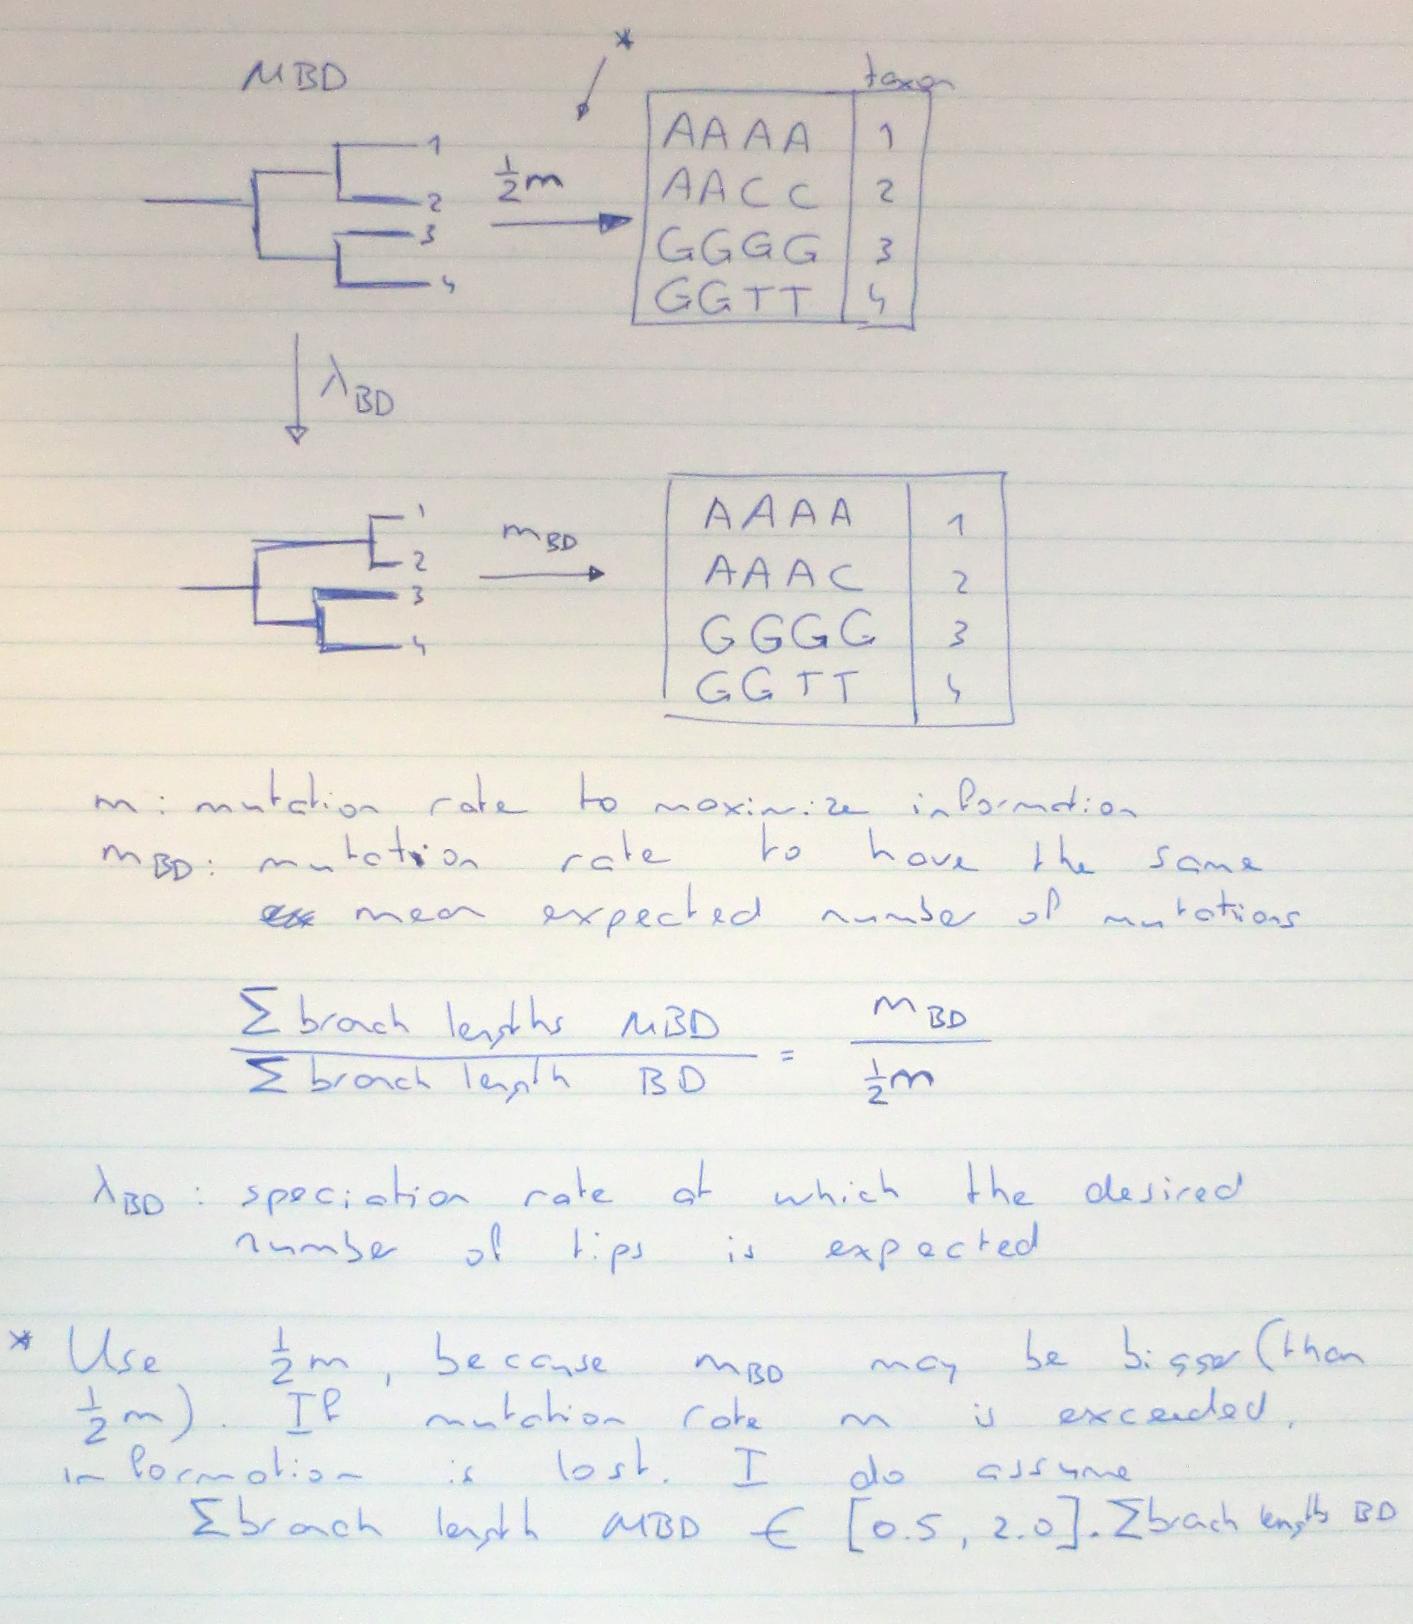 *
MBD
taxon
1
2
3
4
½m
AAAA 1
AACC 2
GGGG 3
GGTT 4
λBD
1
2
3
4
mBD
AAAA 1
AAAC 2
GGGG 3
GGTT 4
m: mutation rate to maximize information
mBD: mutation rate to have the same
mean expected number of mutations
Σ branch lengths MBD
Σ branch length BD
=
mBD
½m
λBD: speciation rate at which the desired
number of tips is expected
* Use ½m, because mBD may be bigger (than
½m). If mutation rate m is exceeded,
information is lost. I do assume
Σ branch length MBD ∈ [0.5, 2.0]. Σ brach lengths BD